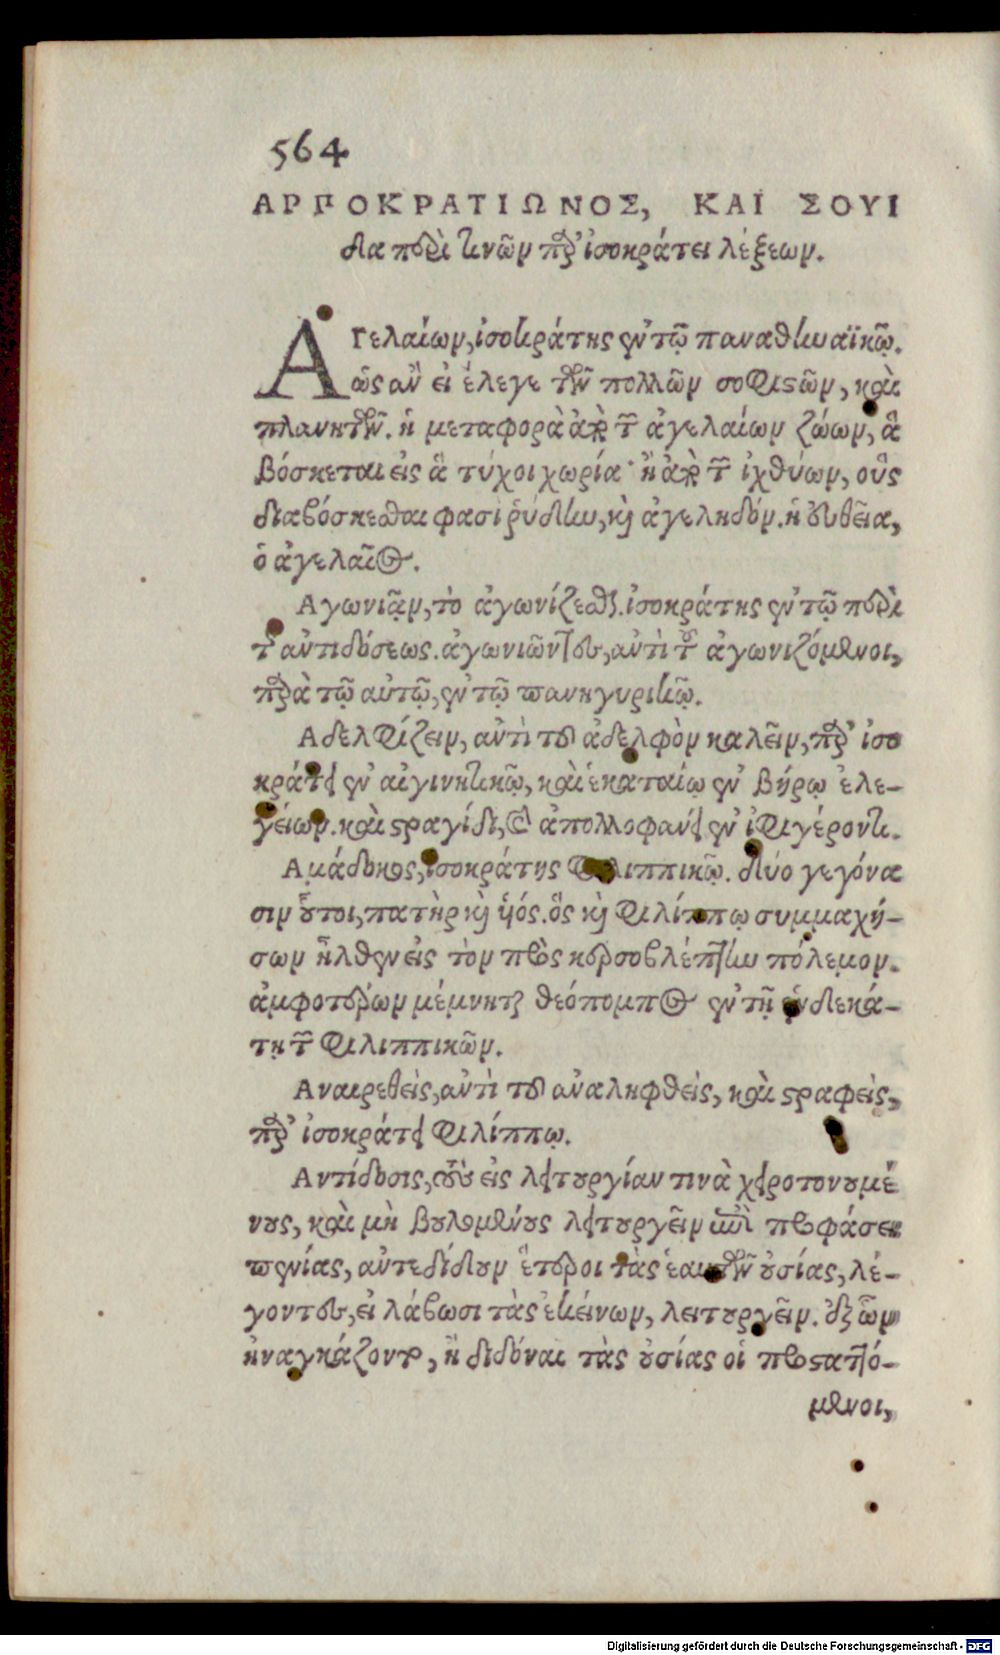 564
ΑΡΠΟΚΡΑΤΙΩΝΟΣ, ΚΑΙ ΣΟΥΙ
δα περὶ τινῶν παρ' ἰσοκράτει λέξεων.
Αγελαίων, ἰσοκράτης ἐν τῷ παναθηναϊκῷ.
ὡς ἂν εἰ ἔλεγε τῶν πολλῶν σοφιστῶν, καὶ
πλανητῶν. ἡ μεταφορὰ ἀπὸ τῶν ἀγελαίων ζώων, ἃ
βόσκεται εἰς ἃ τύχοι χωρία· ἢ ἀπὸ τῶν ἰχθύων, οὓς
διαβόσκεσθαι φασὶ ῥύδην, καὶ ἀγεληδόν. ἡ εὐθεῖα,
ὁ ἀγελαῖος.
Αγωνιᾷν, τὸ ἀγωνίζεσθαι. ἰσοκράτης ἐν τῷ περὶ
τῆς ἀντιδόσεως. ἀγωνιῶντες, αντὶ τοῦ ἀγωνιζόμενοι,
παρὰ τῷ αὐτῷ, ἐν τῷ πανηγυρικῷ.
Αδελφίζειν, αντὶ τοῦ ἀδελφὸν καλεῖν, παρ' ἰσο
κράτει ἐν αἰγινητικῷ, καὶ ἑκαταίῳ ἐν βήρῳ ἐλε-
γείων. καὶ στραγίδι, καὶ ἀπολλοφανει ἐν ἰφιγέροντι.
Αμάδοκος, ἰσοκράτης φιλιππικῷ. δύο γεγόνα
σιν οὗτοι, πατὴρ καὶ υἱός. ὃς καὶ φιλίππῳ συμμαχή-
σων ἦλθεν εἰς τὸν πρὸς κερσοβλέπτην πόλεμον.
ἀμφοτέρων μέμνηται θεόπομπος ἐν τῇ ἑνδεκά-
τῃ τῶν φιλιππικῶν.
Αναιρεθεὶς, αντὶ τοῦ αναληφθεὶς, καὶ στραφεὶς,
παρ' ἰσοκράτει φιλίππῳ.
Αντίδοσις, τοὺς εἰς λειτουργίαν τινὰ χειροτονουμέ
νους, καὶ μὴ βουλομένους λειτουργεῖν ἐπὶ προφάσει
πενίας, αντεδίδουν ἕτεροι τὰς ἑαυτῶν οὐσίας, λέ-
γοντες, εἰ λάβωσι τὰς ἐκείνων, λειτουργεῖν. ἐξ ὧν
ἠναγκάζοντο, ἢ διδόναι τὰς οὐσίας οἱ προστατ­τό-
μενοι,
Digitalisierung gefördert durch die Deutsche Forschungsgemeinschaft - DFG